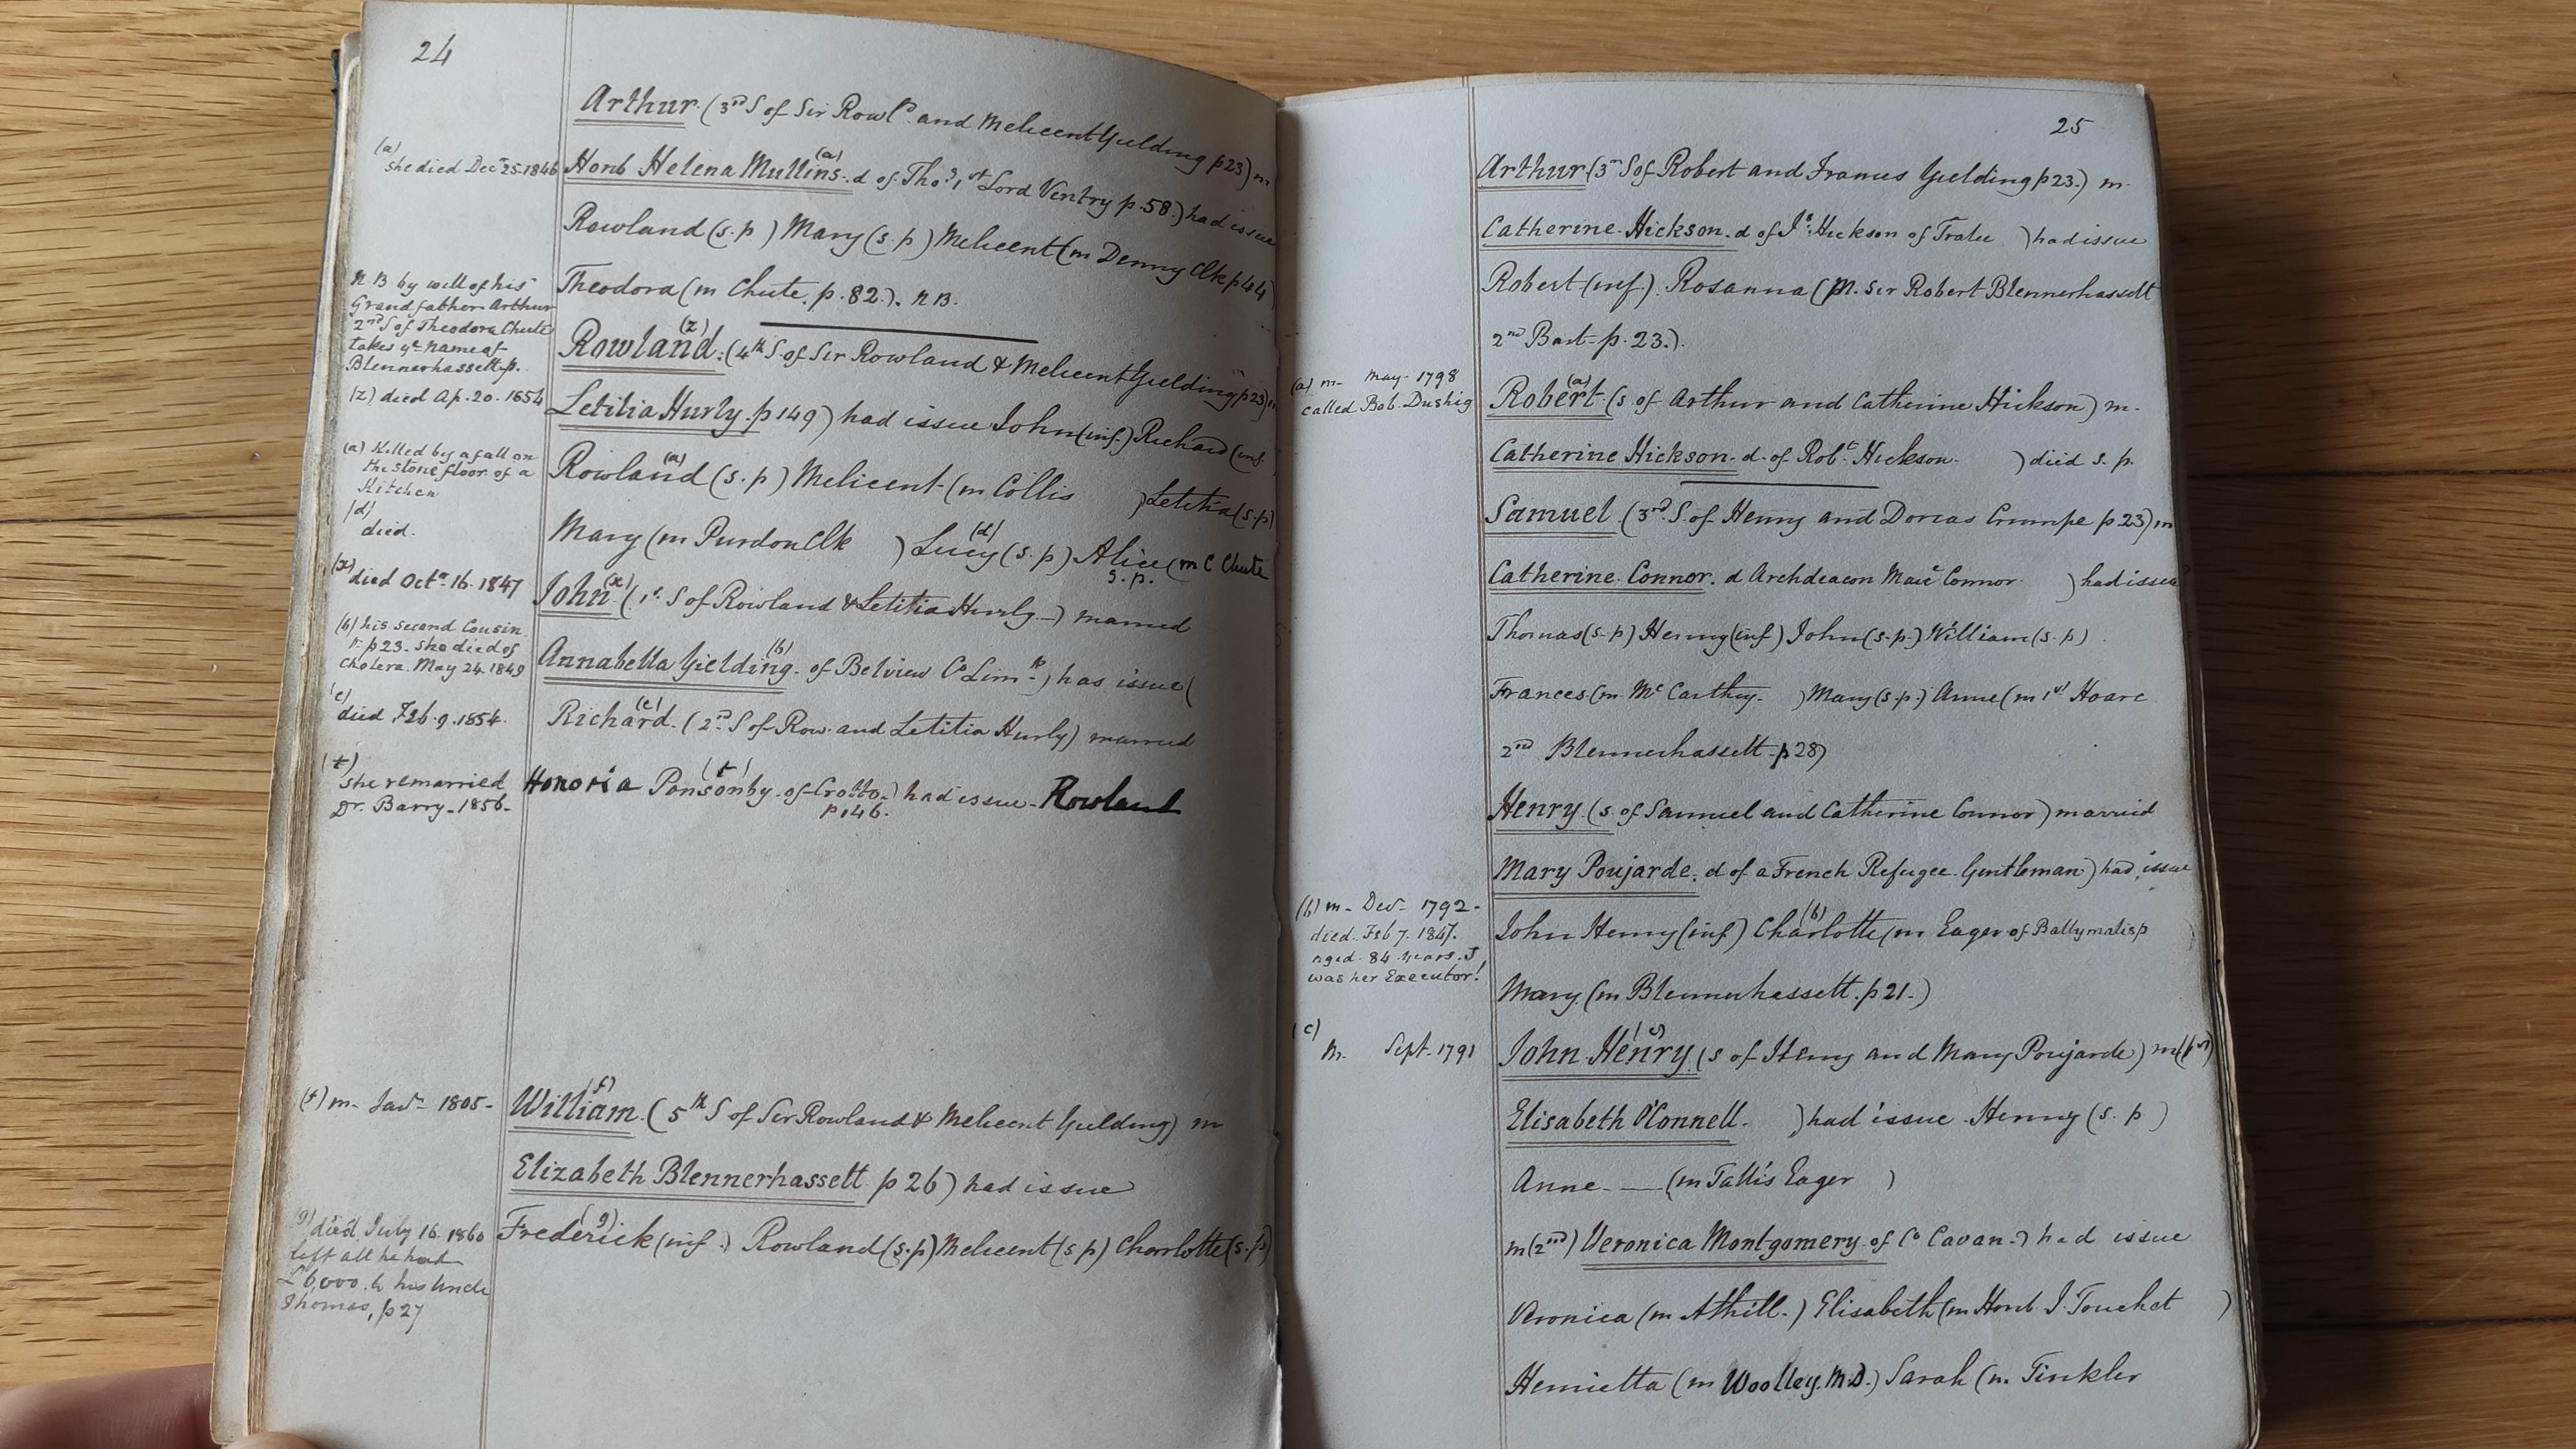 24
Arthur (3rd S of Sir Rowld and Melicent Yielding p 23) m
(a) she died Decr 25 1846
Honb Helena Mullins (a) d of Thos 1st Lord Ventry p. 58.) had issue
Rowland (s.p) Mary (s.p) Melicent (m Denny Clk p 44)
Theodora (m Chute. p. 82.). N B.
N B by will of his
Grandfather Arthur
2nd S of Theodora Chute
takes ye name of
Blennerhassett p.
Rowland (z) (4th S. of Sir Rowland & Melicent Yielding p 23) m
(z) died Ap. 20. 1854
Letitia Hurly p 149) had issue John (inf.) Richard (inf.
(a) Killed by a fall on
the stone floor of a
Kitchen
Rowland (a) (s.p) Melicent (m Collis ) Letitia (s.p)
(d)
died.
Mary (m Purdon Clk ) Lucy (d) (s.p) Alice (m C Chute
s.p.
(x) died Octr 16. 1847
John (x) (1st S of Rowland & Letitia Hurly) married
(b) his second Cousin
p 23. she died of
Cholera. May 24. 1849
Annabella Yielding (b) of Belview Co Limk) has issue (
(e) died Feb. 9. 1854.
Richard (e) (2nd S of Row. and Letitia Hurly) married
(t) she remarried
Dr. Barry - 1856 -
Honoria Ponsonby (t) of Crotto.) had issue - Rowland
p 146.
(f) m - Jany 1805 -
William (f) (5th S of Sir Rowland & Melicent Yielding) m
Elizabeth Blennerhassett p 26) had issue
(g) died July 16. 1860
left all he had
£6,000. to his Uncle
Thomas, p 27
Frederick (g) (inf.) Rowland (s.p) Melicent (s p) Charlotte (s.p)
25
Arthur (3rd S of Robert and Frances Yielding p 23.) m.
Catherine Hickson. d of Js Hickson of Tralee ) had issue
Robert (inf.). Rosanna (m. Sir Robert Blennerhassett
2nd Bart - p. 23.).
(a) m - May - 1798
called Bob. Dushig
Robert (a) (s of Arthur and Catherine Hickson) m.
Catherine Hickson. d. of Robt Hickson. ) died s. p.
Samuel (3rd S. of Henry and Dorcas Crumpe p 23) m
Catherine Connor. d Archdeacon Maue Connor ) had issue
Thomas (s-p) Henry (inf) John (s.p.) William (s.p)
Frances (m. Mc Carthy. ) Mary (s.p.) Anne (m 1st Hoare
2nd Blennerhassett - p 28)
Henry (s. of Samuel and Catherine Connor) married
Mary Poujarde. d of a French Refugee Gentleman) had issue
(b) m - Decr - 1792 -
died Feb 7. 1847.
aged 84 years. I
was her Executor!
John Henry (inf) Charlotte (b) (m Eager of Ballymalis p
Mary (m Blennerhassett. p 21.)
(c)
m. Sept. 1791
John Henry (c) (s of Henry and Mary Poujarde) m (1st)
Elisabeth O'Connell. ) had issue Henry (s. p )
Anne - (m Tallis Eager )
m (2nd) Veronica Montgomery of Co Cavan.) had issue
Veronica (m Athill.) Elisabeth (m Honb. J. Touchet )
Henrietta (m Woolley. M.D.) Sarah (m. Tinkler